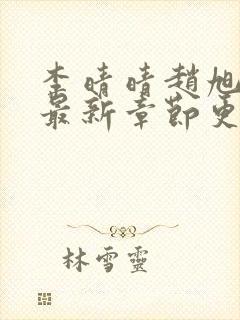 李晴晴趙旭
最新章節更
林雪靈